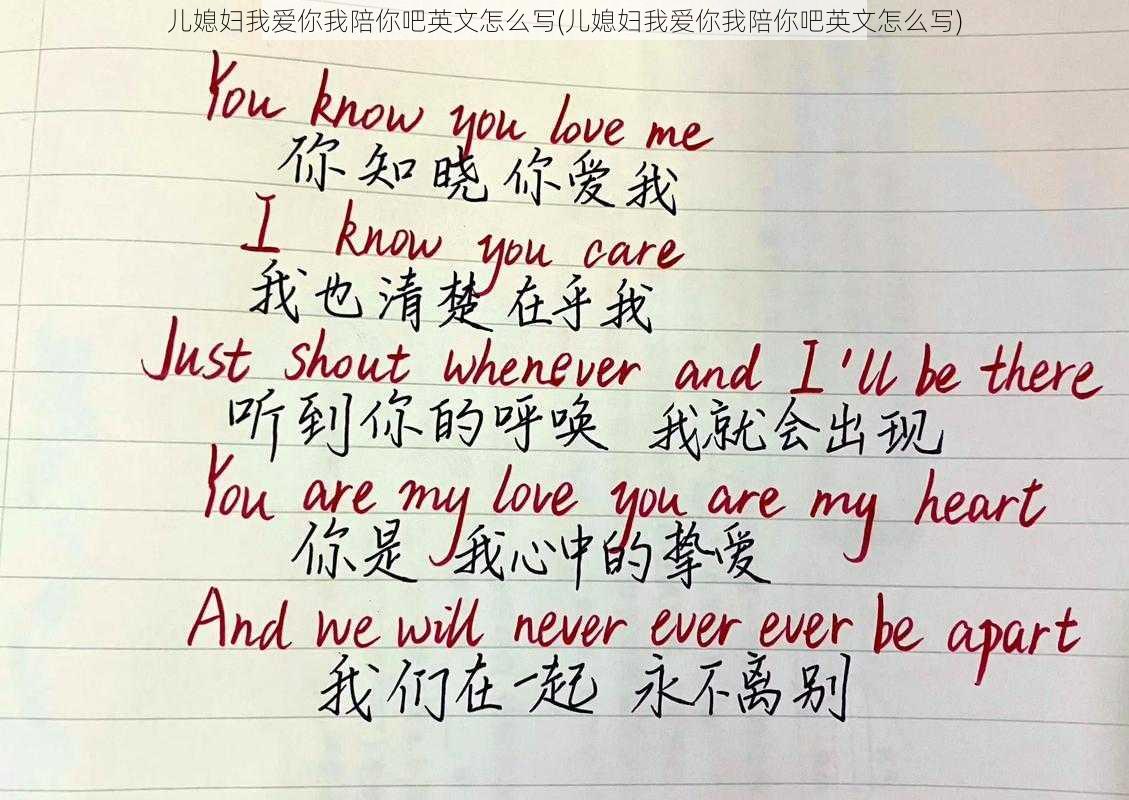 儿媳妇我爱你我陪你吧英文怎么写(儿媳妇我爱你我陪你吧英文怎么写)
You know you love me
你知晓你爱我
I know you care
我也清楚在乎我
Just shout whenever and I'll be there
听到你的呼唤 我就会出现
You are my love you are my heart
你是 我心中的挚爱
And we will never ever ever be apart
我们在一起 永不离别